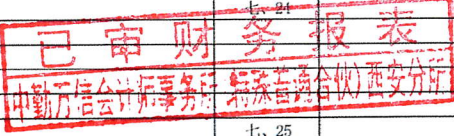 七、24
已审财务报表
中勤万信会计师事务所(特殊普通合伙)西安分所
七、25